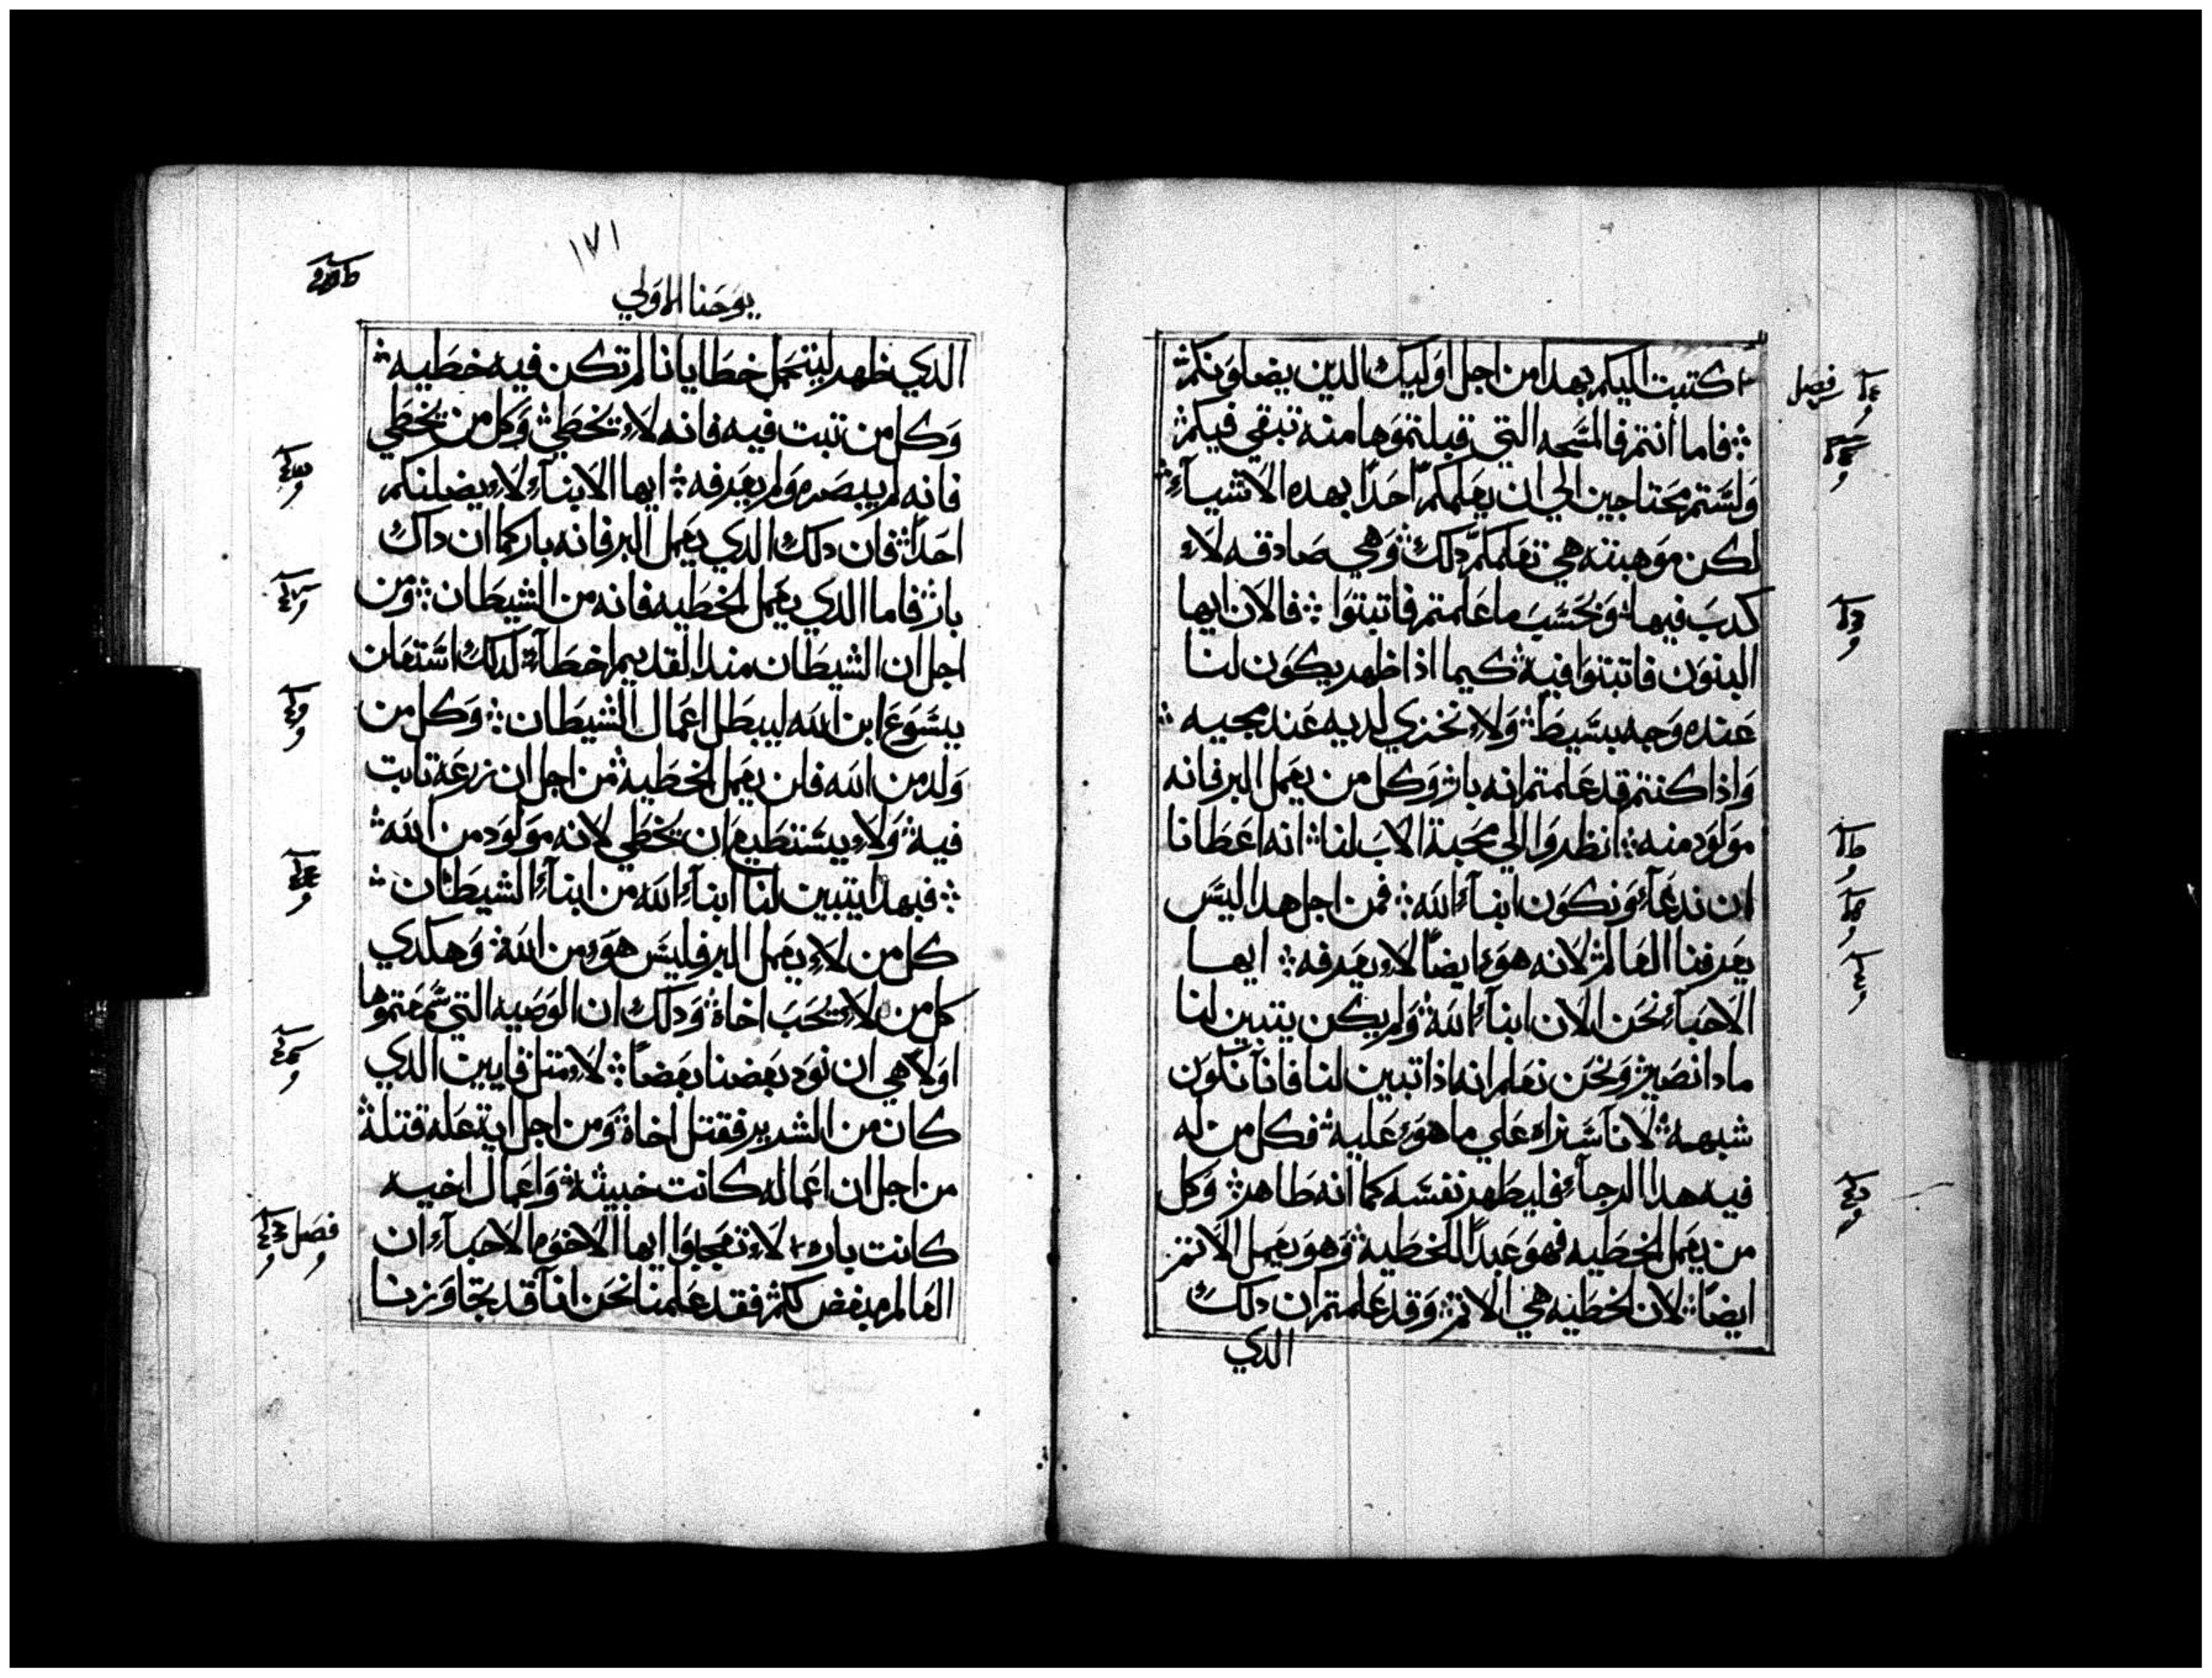 كتبت اليكم بهدا من اجل اوليك الدين يضلونكم
فاما انتم فالمسحه التي قبلتموها منه تبقي فيكم
ولستم محتاجين الي ان يعلمكم احدا بهده الاشيآء
لكن موهبته هي تعلمكم دلك وهي صادقه لاء
كدب فيها وبحسب ما علمتم فاتبتوا فالان ايها
البنون فاتبتوا فيه كيما اذا ظهر يكون لنا
عنده وجه بسيط ولاء نخزي لديه عند مجيه
واذا كنتم قد علمتم انه بار وكل من يعمل البر فانه
مولود منه انظروا الي محبة الاب لنا انه اعطانا
ان ندعآء ونكون ابنآء الله فمن اجل هدا ليس
يعرفنا العالم لانه هوء ايضا لاء يعرفه ايها
الاحبآء نحن الان ابنآء الله ولم يكن يتبين لنا
مادا نصير ونحن نعلم انه اذا تبين لنا فانا نكون
شبهه لانا سنراه علي ما هوء عليه فكل من له
فيه هدا الرجآء فليطهر نفسه كما انه طاهر وكل
من يعمل الخطيه فهو عبدا للخطيه وهو يعمل الاتم
ايضا لان الخطيه هي الاتم وقد علمتم ان دلك
الدي
فصل
١٧١
يوحنا الاولي
الدي ظهر ليتحمل خطايانا لم تكن فيه خطيه
وكل من تبت فيه فانه لاء يخطي وكل من يخطي
فانه لم يبصره ولم يعرفه ايها الابنآء لاء يضلنكم
احدا فان دلك الدي يعمل البر فانه بار كما ان داك
بار فاما الدي يعمل الخطيه فانه من الشيطان ومن
اجل ان الشيطان مند القديم اخطآء لدلك استعلن
يسوع ابن الله ليبطل اعمال الشيطان وكل من
ولد من الله فلن يعمل الخطيه من اجل ان زرعه تابت
فيه ولاء يستطيع ان يخطي لانه مولود من الله
فبهدا يتبين لنا ابنآء الله من ابنآء الشيطان
كل من لاء يعمل البر فليس هوء من الله وهكدي
كل من لاء يحب اخاه ودلك ان الوصيه التي سمعتموها
اولا هي ان نود بعضنا بعضا لاء متل قايين الدي
كان من الشرير فقتل اخاه ومن اجل ايت عله قتله
من اجل ان اعماله كانت خبيثه واعمال اخيه
كانت باره لاء تعجبوا ايها الاخوه الاحبآء ان
العالم مبغض لكم فقد علمنا نحن انا قد تجاوزنا
فصل